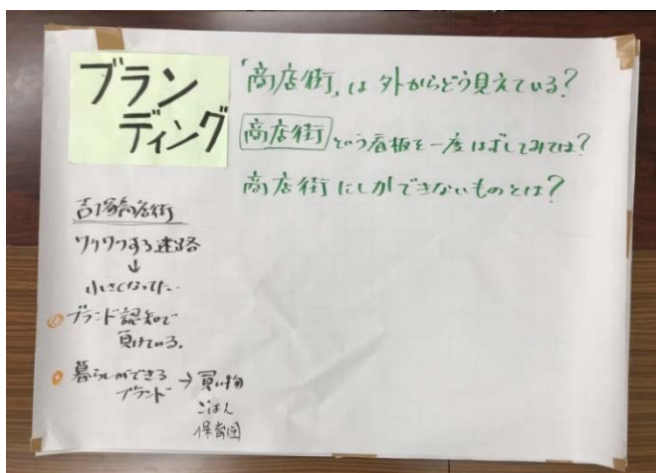 ブラン
ディング
「商店街」は外からどう見えている?
商店街という看板を一度はずしてみては?
商店街にしかできないものとは?
吉塚商店街
ワクワクする迷路
↓
小さくなってた
◎ブランド認知で
負けている。
暮らしができる
ブランド
→買い物
ごはん
保育園